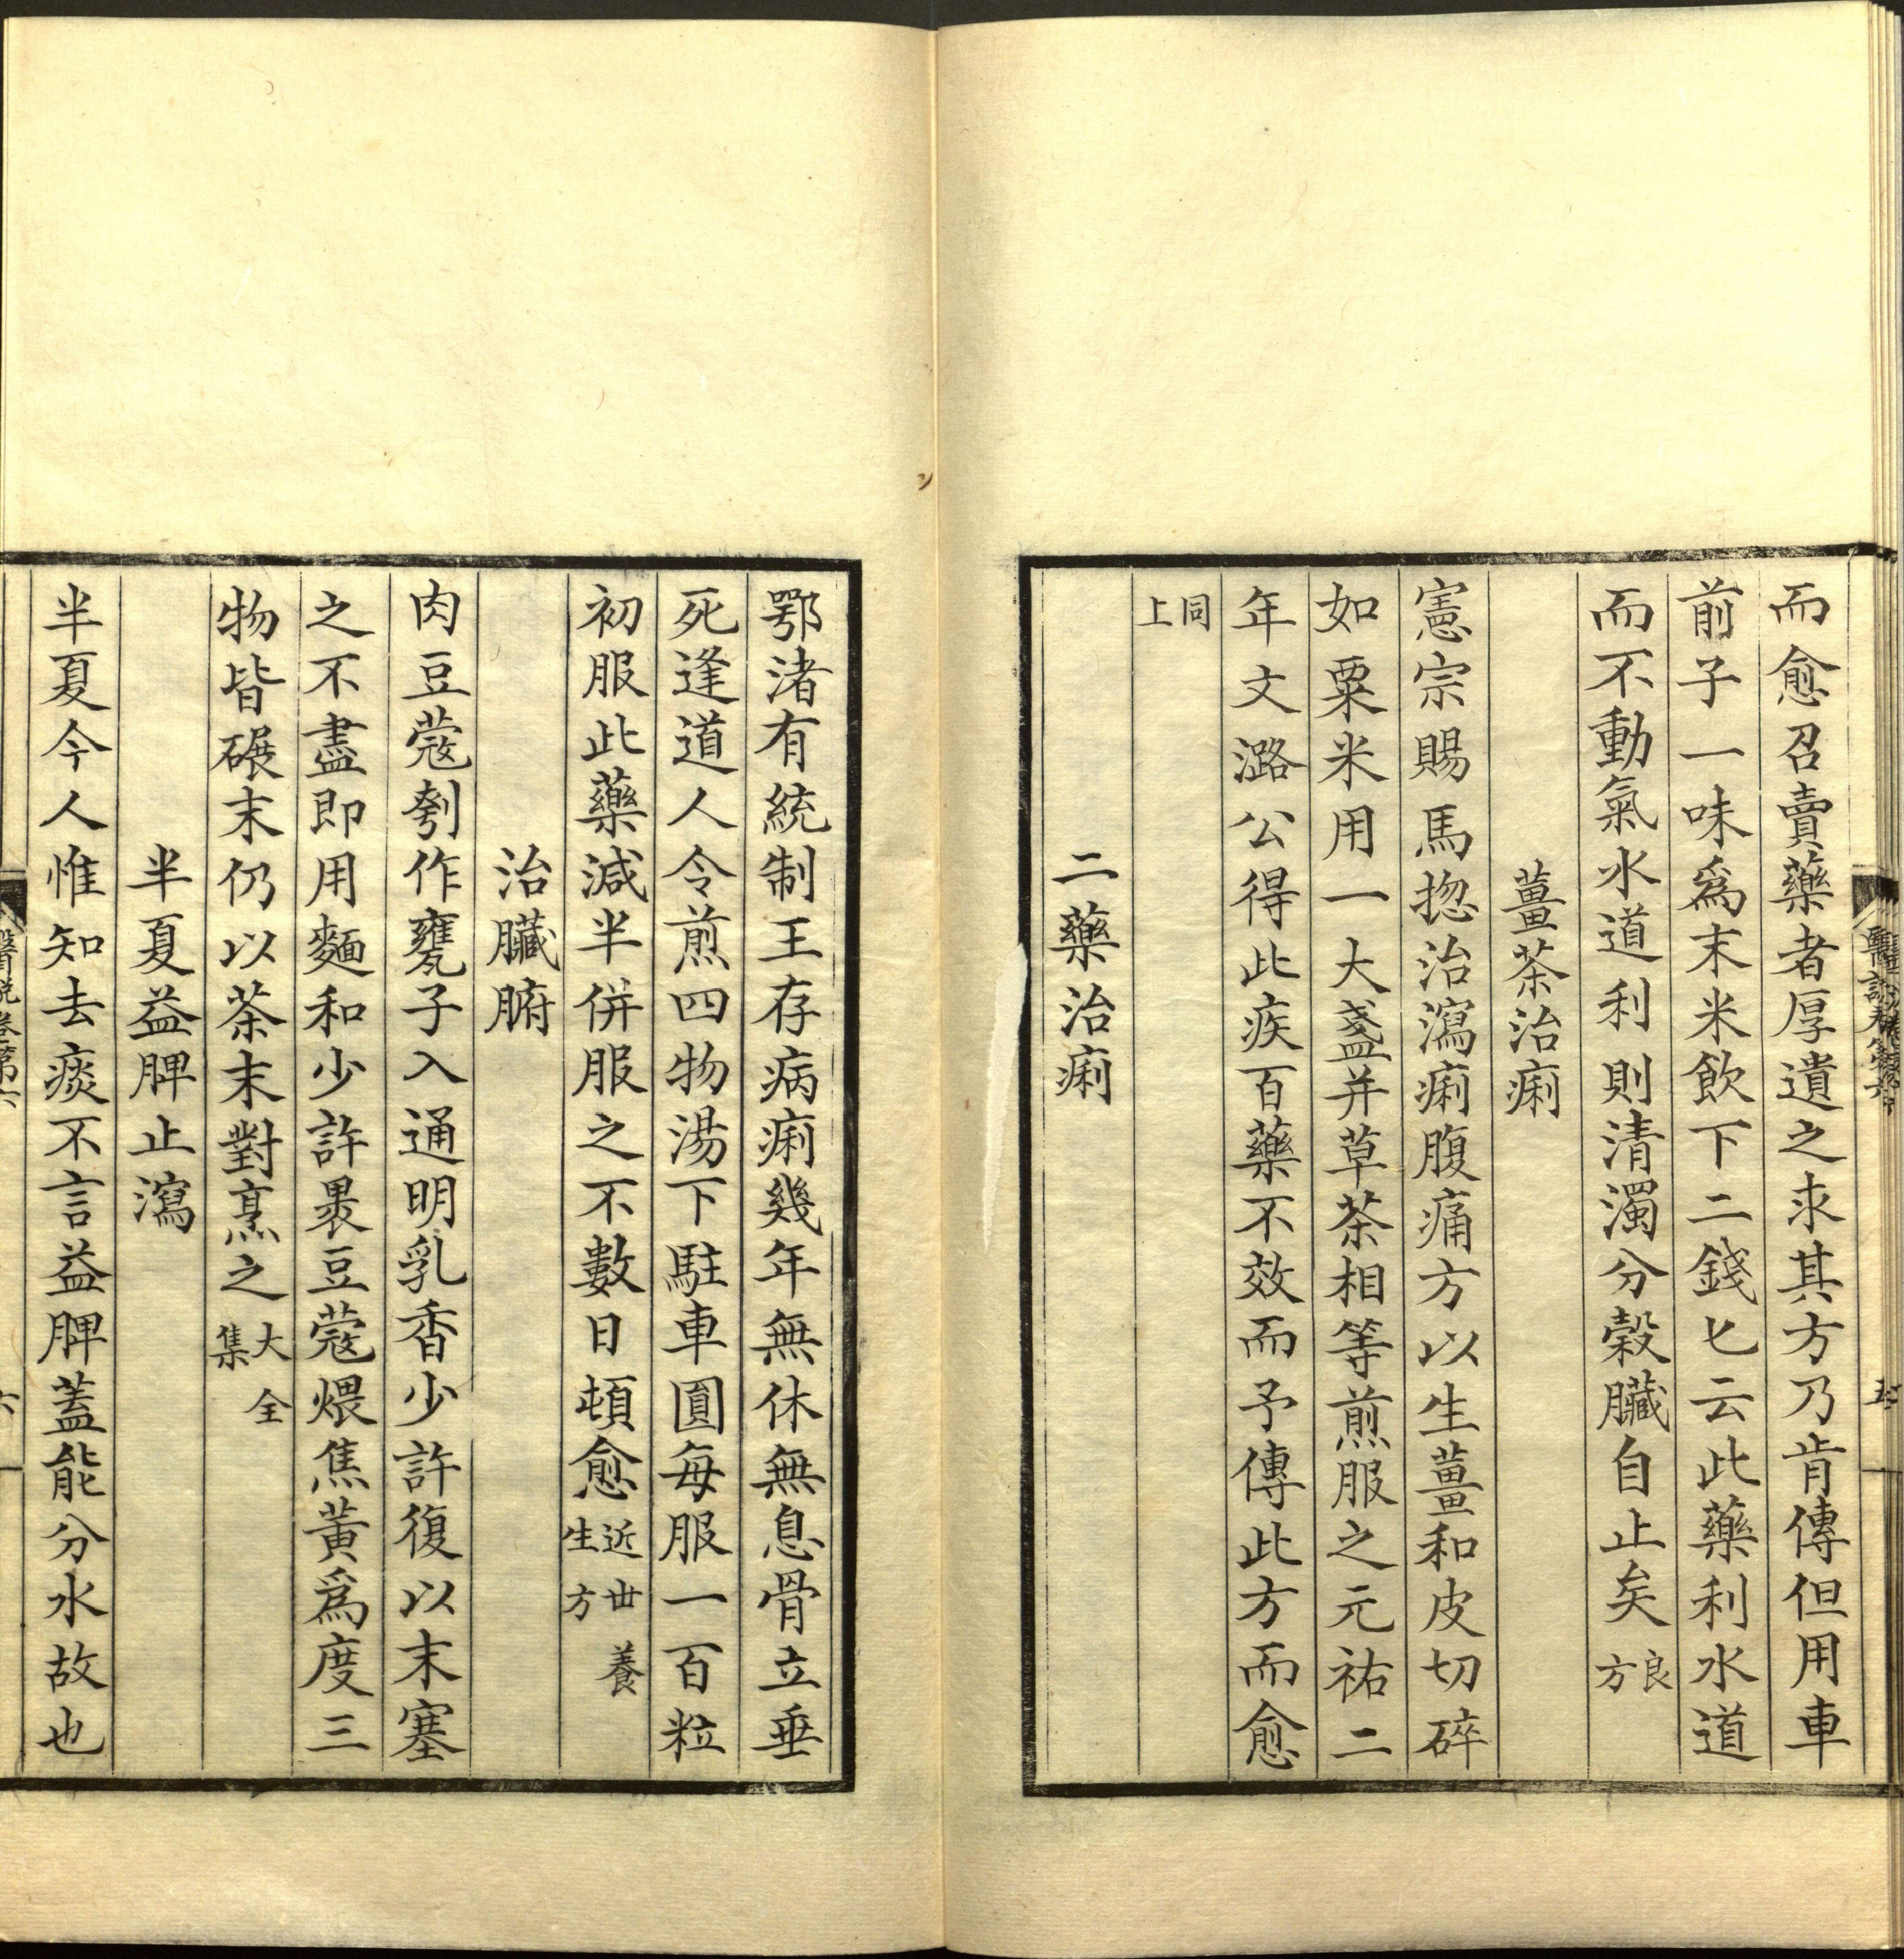 而愈召賣藥者厚遺之求其方乃肯傳但用車
前子一味爲末米飲下二錢匕云此藥利水道
而不動氣水道利則清濁分穀臟自止矣良方
薑茶治痢
憲宗賜馬揔治瀉痢腹痛方以生薑和皮切碎
如粟米用一大盞并草茶相等煎服之元祐二
年文潞公得此疾百藥不效而予傳此方而愈
同上
二藥治痢
鄂渚有統制王存病痢幾年無休無息骨立垂
死逢道人令煎四物湯下駐車圓每服一百粒
初服此藥減半併服之不數日頓愈近世養生方
治臟腑
肉豆蔻刳作甕子入通明乳香少許復以末塞
之不盡即用麵和少許裹豆蔻煨焦黃爲度三
物皆碾末仍以茶末對烹之大全集
半夏益脾止瀉
半夏今人惟知去痰不言益脾蓋能分水故也
醫說卷第六
六